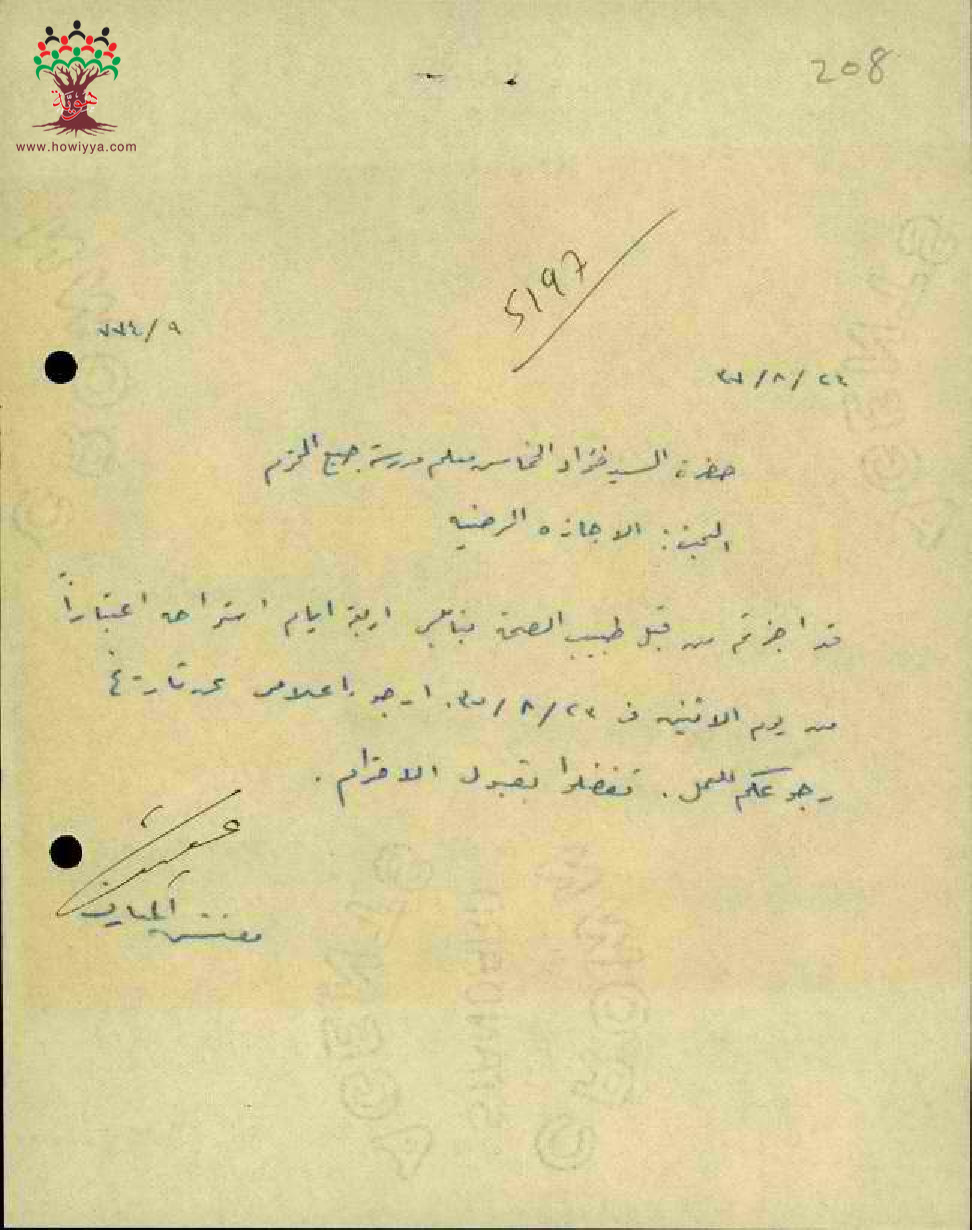 هوية
www.howiyya.com
208
5197
٧٧٤/٩
٣٧/٨/٢٤
حضرة السيد فؤاد النحاس معلم مدرسة جميع المحترم
المبحث: الاجازه المرضيه
قد اجزتم من قبل طبيب الصحة بنابلس اربعة ايام استراحه اعتباراً
من يوم الاثنين في ٣٧/٨/٢٣. ارجو اعلامي عن تاريخ
رجوعكم للعمل. تفضلوا بقبول الاحترام.
مفتش المعارف